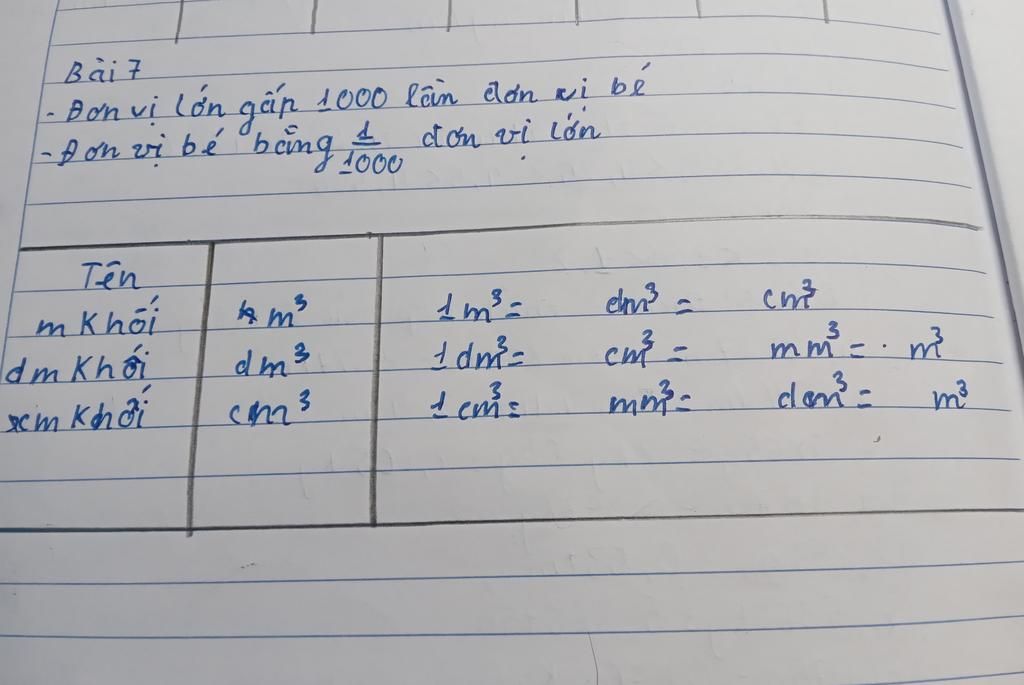 Bài 7
- Đơn vị lớn gấp 1000 lần đơn vị bé
- Đơn vị bé bằng 1/1000 đơn vị lớn
Tên
m Khối m³ 1 m³ = dm³ = cm³
dm Khối dm³ 1 dm³ = cm³ = mm³ = . m³
cm Khối cm³ 1 cm³ = mm³ = dm³ = m³